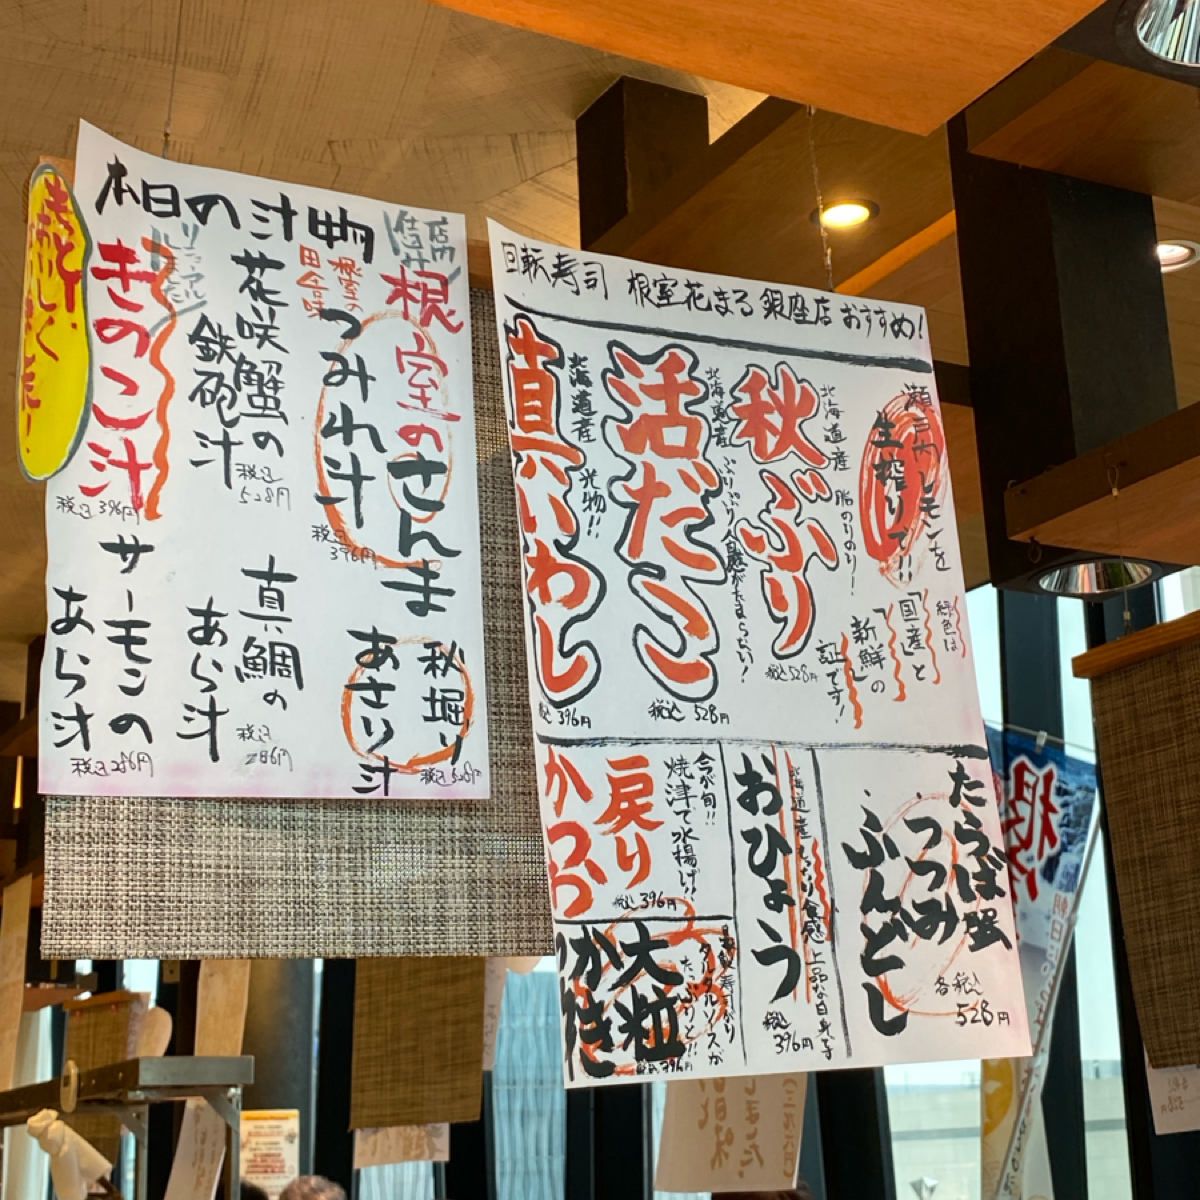 本日の汁物
店内仕込み
根室のさんま
つみれ汁
根室の
田舎味
税込
396円
花咲蟹の
鉄砲汁
税込
528円
リニューアル
しました
きのこ汁
税込 396円
秋堀り
あさり汁
税込 528円
真鯛の
あら汁
税込
286円
サーモンの
あら汁
税込 286円
回転寿司 根室花まる 銀座店 おすすめ!
瀬戸内レモンを
生搾りで!!
緑色は
「国産」と
「新鮮」の
証です!
北海道産 脂のりのり!
秋ぶり
税込 528円
北海道産 ぷりぷり食感がたまらない!
活だこ
税込 528円
北海道産 光物!!
真いわし
税込 396円
たらば蟹
つつみ
ふんどし
各税込
528円
北海道産 もっちり食感 上品な白身
おひょう
税込
396円
今が旬!!
焼津で水揚げ!!
戻り
かつお
税込 396円
タルタルソースが
たっぷりと!!
大粒
かき
税込 396円